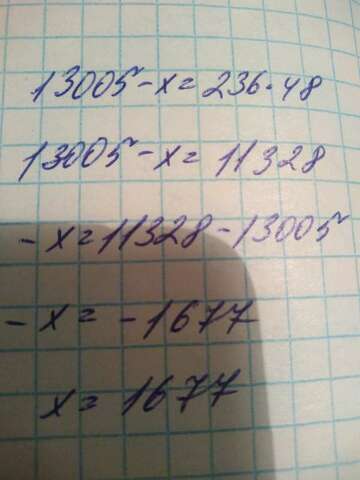 13005-x=236·48
13005-x=11328
-x=11328-13005
-x=-1677
x=1677